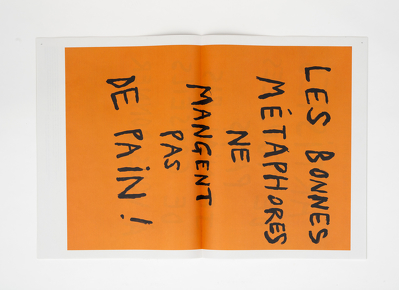 LES BONNES
MÉTAPHORES
NE
MANGENT
PAS
DE PAiN!